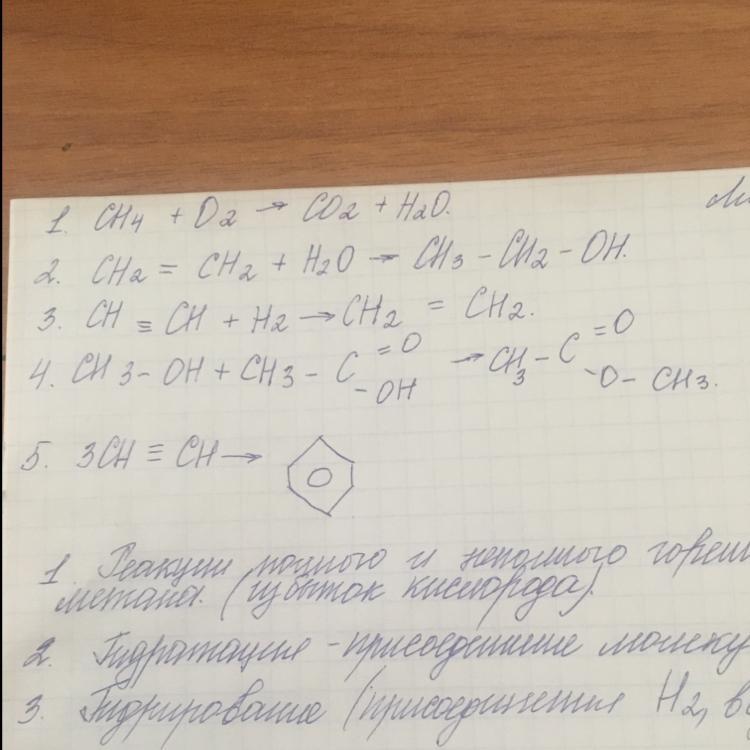 1. CH4 + O2 → CO2 + H2O.
2. CH2 = CH2 + H2O → CH3 – CH2 – OH.
3. CH ≡ CH + H2 → CH2 = CH2.
4. CH3 – OH + CH3 – C =O –OH → CH3 – C =O –O – CH3.
5. 3CH ≡ CH →
1. Реакции полного и неполного
метана. (избыток кислорода).
2. Гидратация – присоединение
3. Гидрирование (присоединения H2,